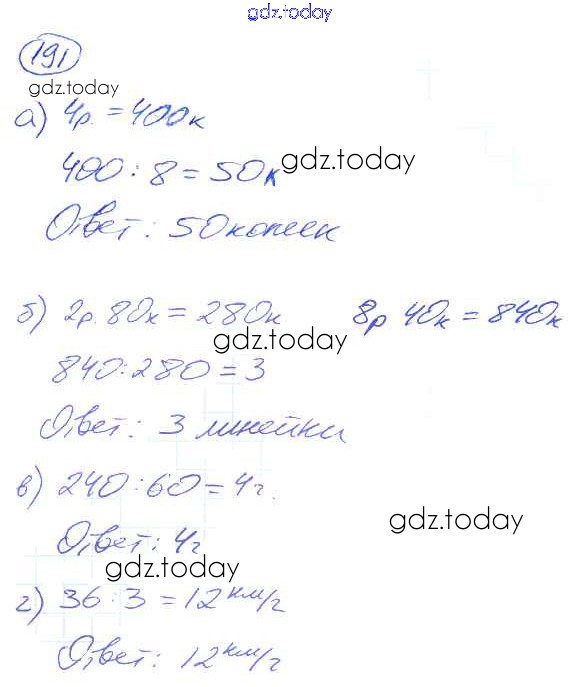 gdz.today
191
gdz.today
а) 4р. = 400к
400 : 8 = 50к gdz.today
Ответ: 50 копеек
б) 2р. 80к = 280к 8р 40к = 840к
gdz.today
840 : 280 = 3
Ответ: 3 линейки
в) 240 : 60 = 4г.
gdz.today
Ответ: 4г
gdz.today
г) 36 : 3 = 12 км/г
Ответ: 12 км/г